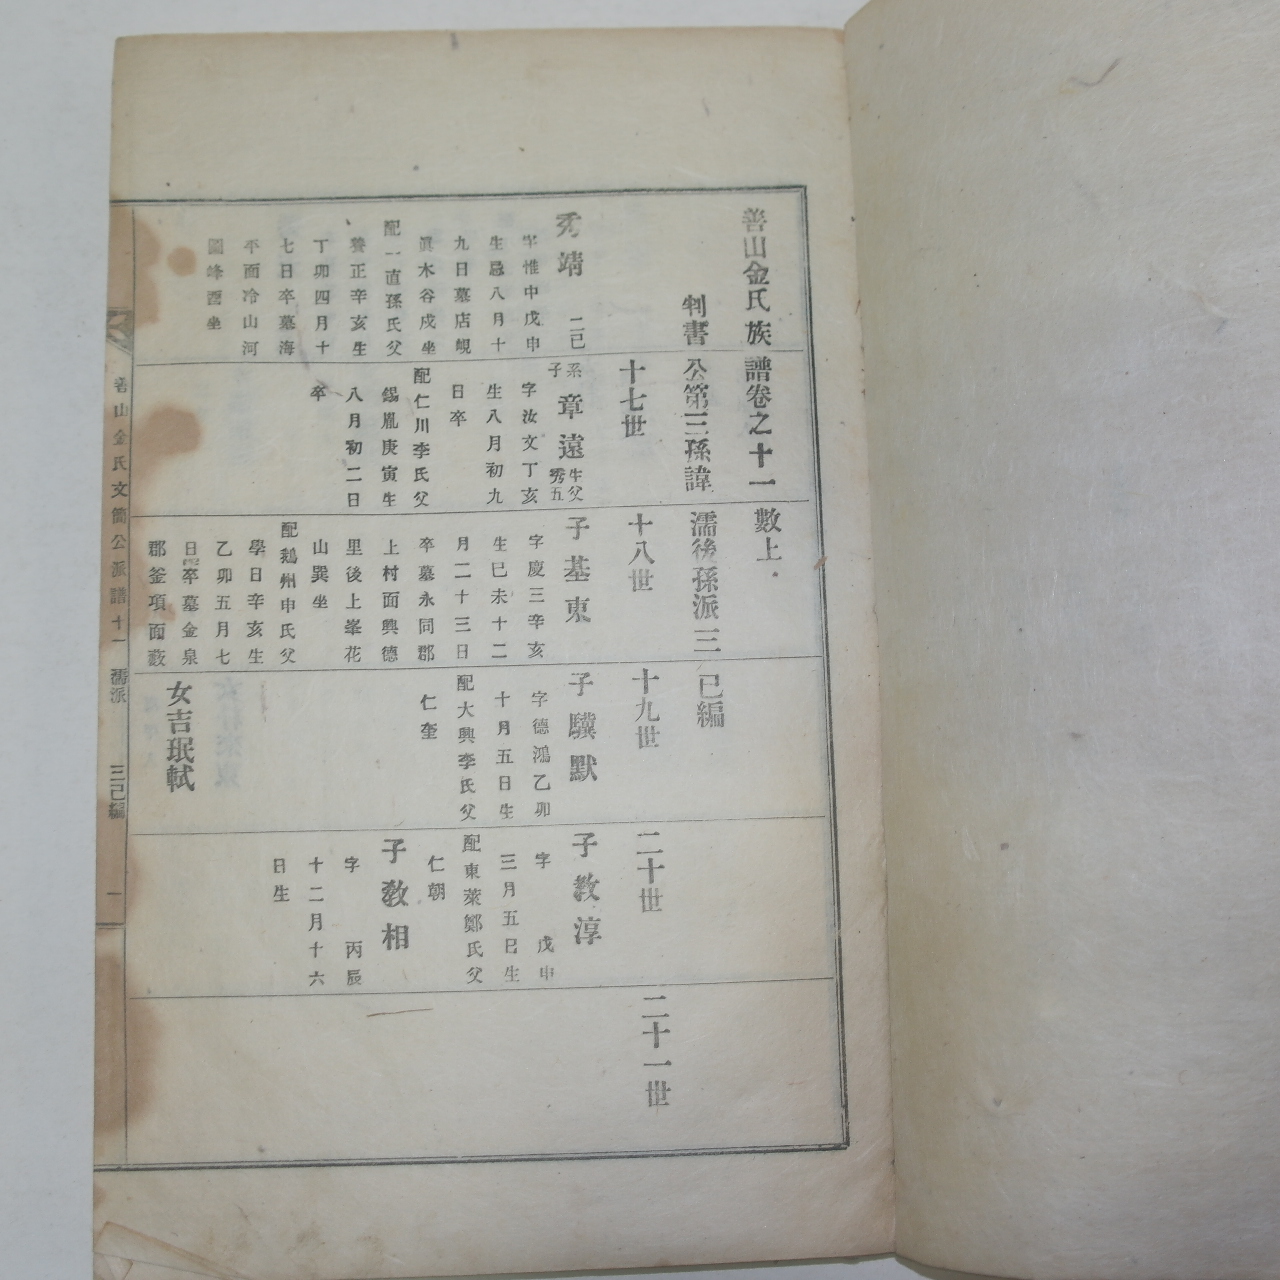 善山金氏族譜卷之十一 數上
判書公第三孫諱濡後孫派三 已編
十七世
十八世
十九世
二十世
二十一世
秀靖 二已
字惟中戊申
生忌八月十
九日墓店峴
眞木谷戌坐
配一直孫氏父
養正辛亥生
丁卯四月十
七日卒墓海
平面冷山河
圖峰酉坐
系子章遠 生父秀五
字汝文丁亥
生八月初九
日卒
配仁川李氏父
錫胤庚寅生
八月初二日
卒
子基東
字慶三辛亥
生巳未十二
月二十三日
卒墓永同郡
上村面興德
里後上峯花
山巽坐
配鵝州申氏父
學日辛亥生
乙卯五月七
日卒墓金泉
郡釜項面藪
子驥默
字德鴻乙卯
十月五日生
配大興李氏父
仁奎
女吉珉軾
子教淳
字 戊申
三月五日生
配東萊鄭氏父
仁朝
子敎相
字 丙辰
十二月十六
日生
善山金氏文簡公派譜十一 濡派 三已編 一